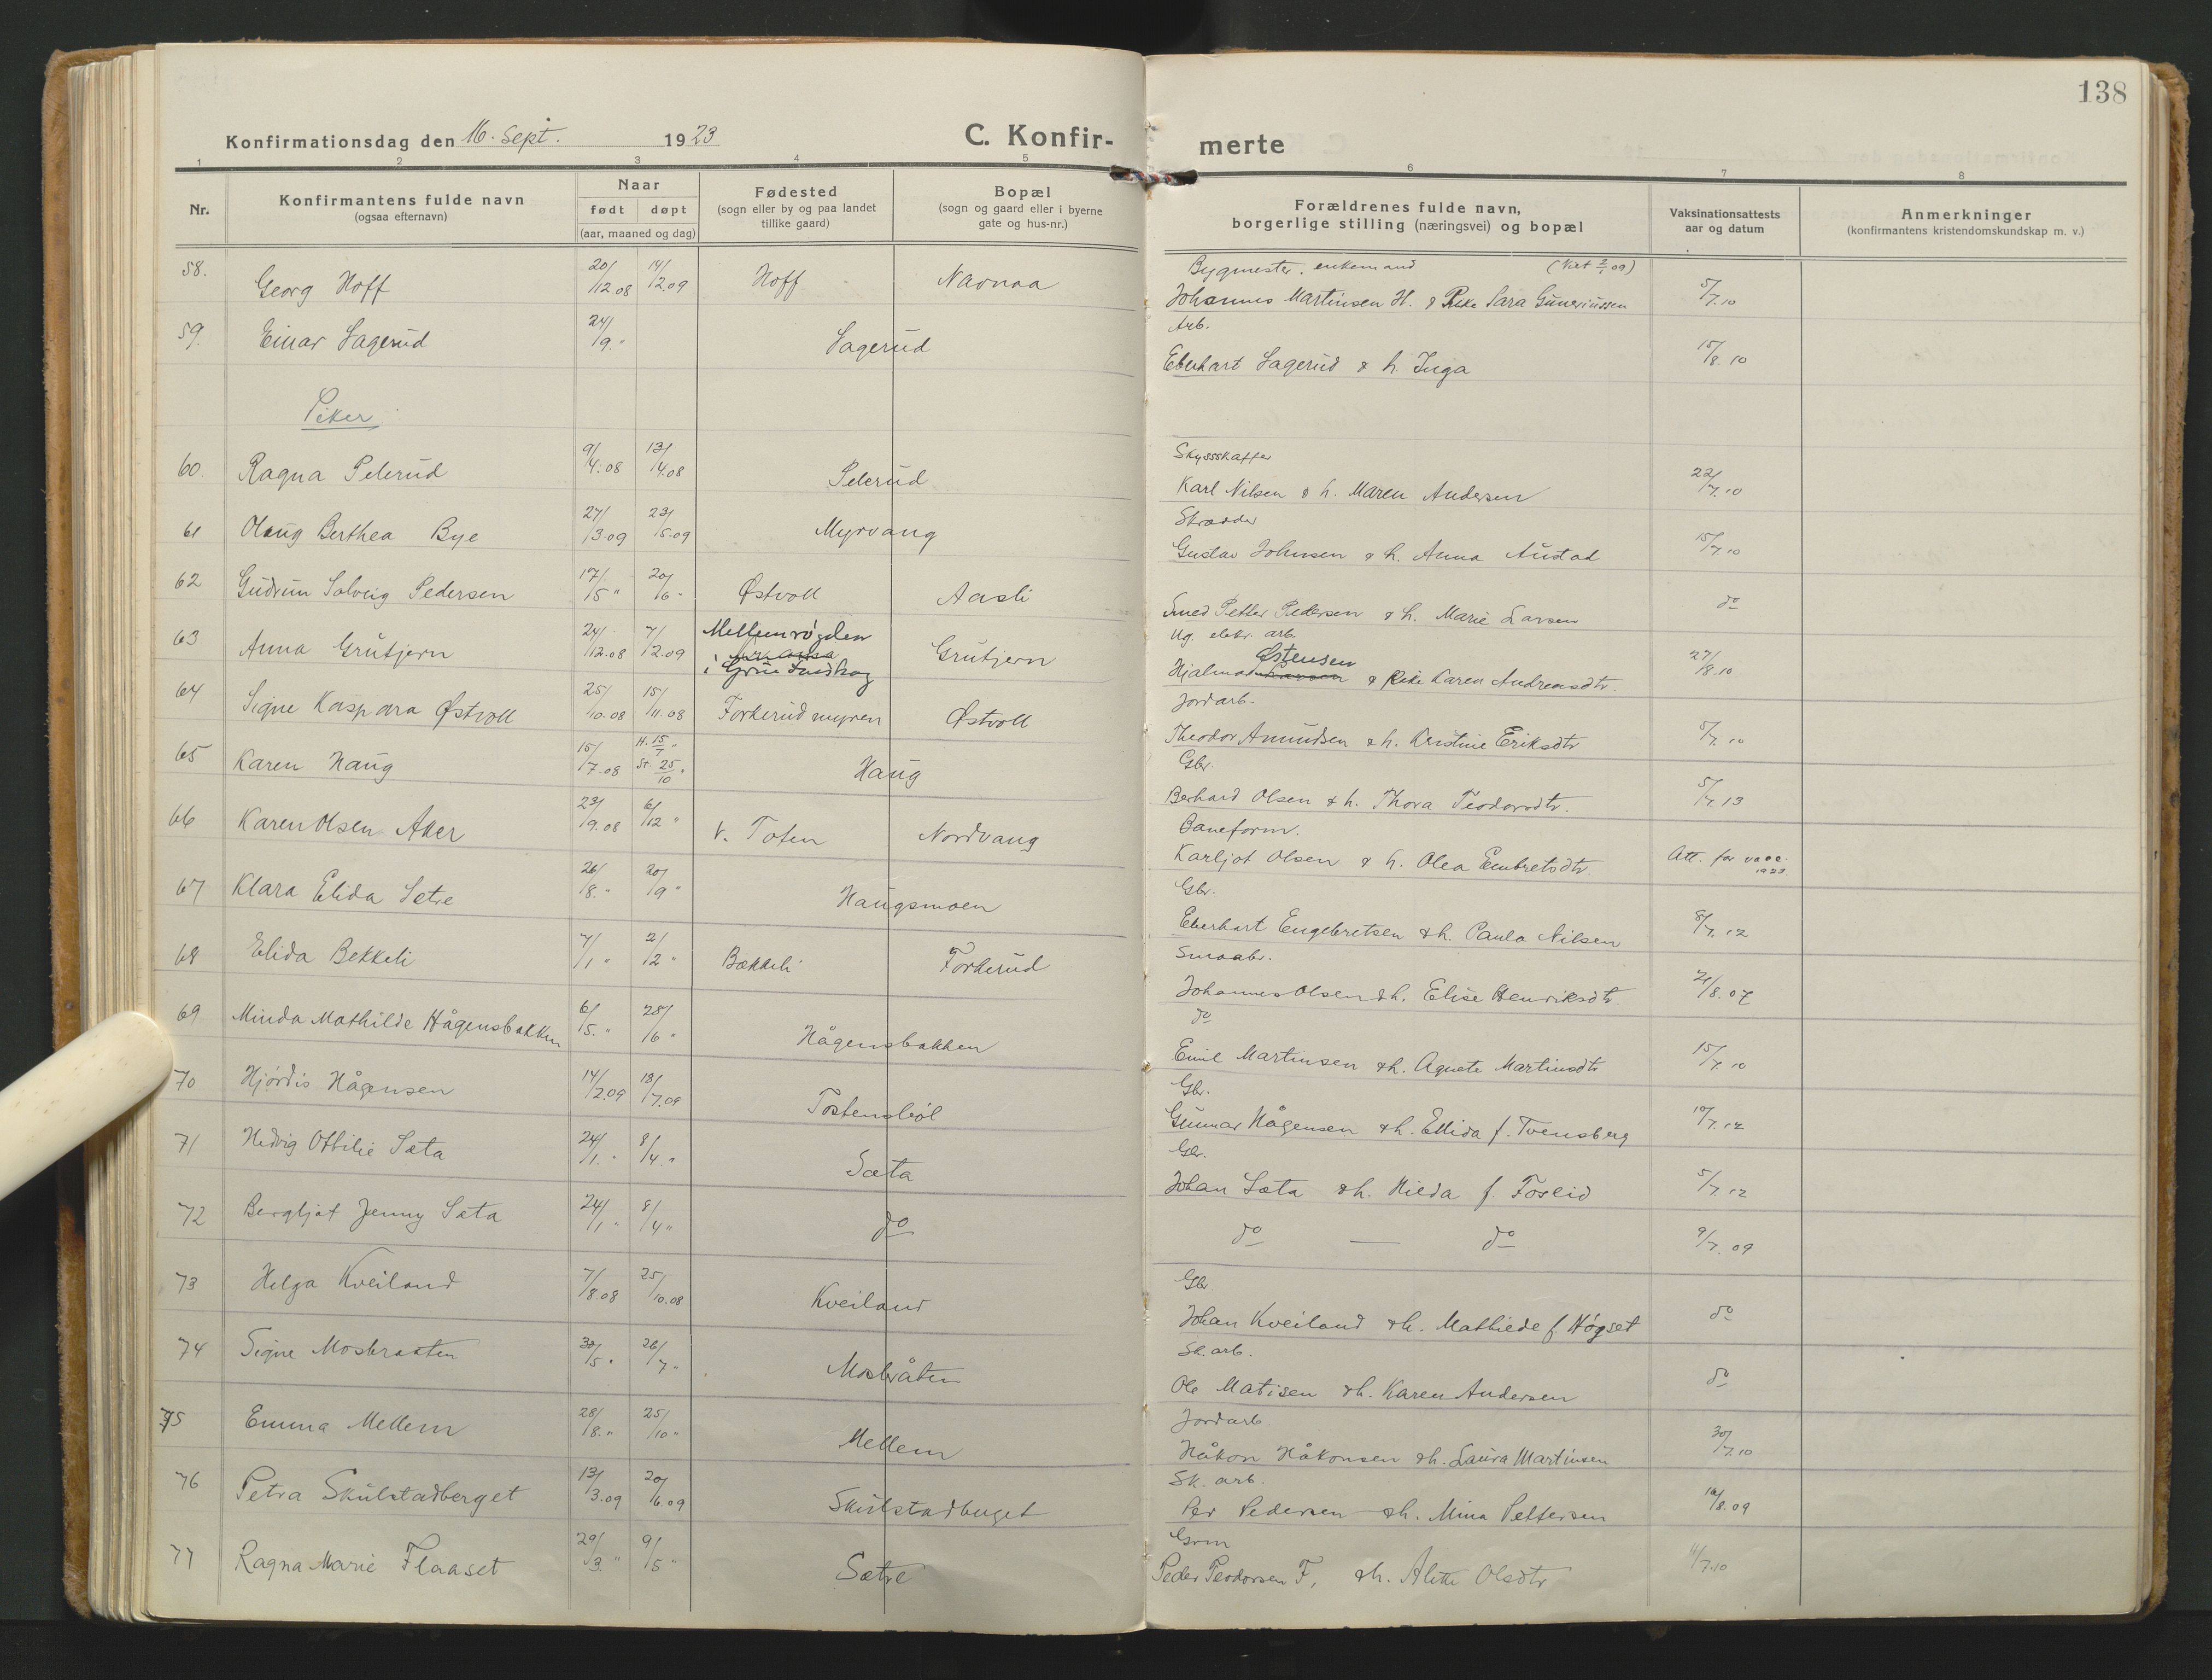 138
Konfirmationsdag den 16. Sept. 1923
C. Konfir- merte
1 2 3 4 5 6 7 8
Nr.
Konfirmantens fulde navn
(ogsaa efternavn)
Naar
født døpt
(aar, maaned og dag)
Fødested
(sogn eller by og paa landet
tillike gaard)
Bopæl
(sogn og gaard eller i byerne
gate og hus-nr.)
Forældrenes fulde navn,
borgerlige stilling (næringsvei) og bopæl
Vaksinationsattests
aar og datum
Anmerkninger
(konfirmantens kristendomskundskap m. v.)
Bygmester, enkemand (Viet 2/1 09)
58. Georg Hoff 20/12 08 14/12.09 Hoff Navnaa Johannes Martinsen H. & Pike Sara Guneriussen 5/7.10
Arb.
59. Einar Sagerud 24/9. " Sagerud Eberhart Sagerud & h. Inga 15/8.10
Piker
Skyssskaffer
60. Ragna Pelerud 9/4.08 13/4.08 Pelerud Karl Nilsen & h. Maren Andersen 22/7.10
Skrædder
61 Olaug Berthea Bye 27/3.09 23/5.09 Myrvang Gustav Johnsen & h. Anna Austad 15/7.10
62 Gudrun Solveig Pedersen 17/5 " 20/6 " Østvoll Aasli Smed Petter Pedersen & h. Marie Larsen do
Ug. elektr. arb.
63 Anna Grutjern 24/12.08 7/2.09 Mellemrøgden i Grue Finskog Grutjern Hjalmar Østensen & Pike Karen Andreasdtr. 27/8.10
Jordarb.
64 Signe Kaspara Østvoll 25/10.08 15/11.08 Forkerudmyren Østvoll Theodor Amundsen & h. Kristine Eriksdtr 5/7.10
Gbr.
65 Karen Haug 15/7.08 H. 15/7 " St. 25/10 " Haug Berhard Olsen & h. Thora Teodorsdtr. 5/7.13
Baneform.
66 Karen Olsen Aker 23/9.08 6/12 " V. Toten Nordvang Karljot Olsen & h. Olea Embretsdtr. Att. for vacc. 1923
Gbr.
67 Klara Elida Sætre 26/8. " 20/9 " Haugsmoen Eberhart Engebretsen & h. Paula Nilsen 8/7.12
Smaabr.
68 Elida Bekkeli 7/1 " 2/2 " Bækkeli Forkerud Johannes Olsen & h. Elise Henriksdtr. 21/8.07
do
69 Minda Mathilde Hågensbakken 6/5. " 28/6 " Hågensbakken Emil Martinsen & h. Agnete Martinsdtr 15/7.10
Gbr.
70 Hjørdis Hågensen 14/2.09 18/7.09 Tostensbøl Gunnar Hågensen & h. Ellida f. Tvensberg 10/7.12
Gbr.
71 Hedvig Ottilie Sæta 24/1. " 8/4. " Sæta Johan Sæta & h. Hilda f. Foseid 5/7.12
72 Bergljot Jenny Sæta 24/1 " 8/4 " do do — do 9/7.09
Gbr
73 Helga Kveiland 7/8.08 25/10.08 Kveiland Johan Kveiland & h. Mathilde f. Høgset do
Sk. arb.
74 Signe Mosbraaten 30/5 " 26/7 " Mosbråten Ole Matisen & h. Karen Andersen do
Jordarb.
75 Emma Mellem 28/8. " 25/10 " Mellem Håkon Håkonsen & h. Laura Martinsen 30/7.10
Sk. arb.
76 Petra Skulstadberget 13/3.09 20/6.09 Skulstadberget Per Pedersen & h. Mina Pettersen 16/8.09
Grm
77 Ragna Marie Flaaset 29/3. " 9/5 " Sætre Peder Teodorsen F. & h. Alette Olsdtr 11/7.10